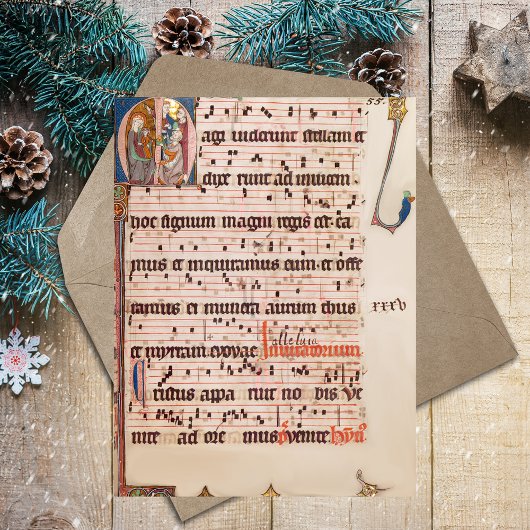 55.
Magi viderunt stellam et
dixe runt ad invicem
hoc signum magni regis est. ea
mus et inquiramus eum. et offe
ramus ei munera aurum thus
xxxv
et myrram evovae alleluia Invitatorium
Cristus appa ruit no bis ve
nite ad ore mus ps venite hyn